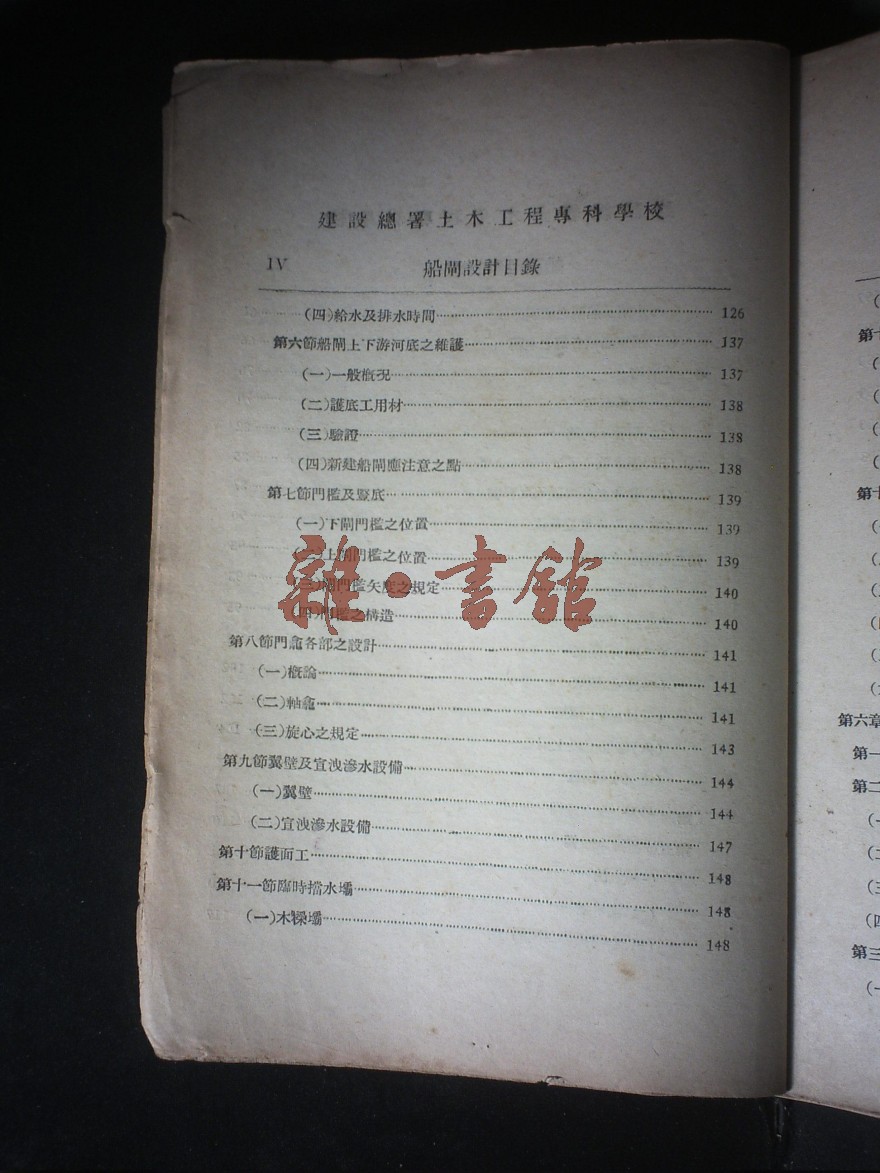 建設總署土木工程專科學校
IV 船閘設計目錄
(四)給水及排水時間 126
第六節船閘上下游河底之維護 137
(一)一般概況 137
(二)護底工用材 138
(三)驗證 138
(四)新建船閘應注意之點 138
第七節門檻及豎底 139
(一)下閘門檻之位置 139
(二)上閘門檻之位置 139
(三)閘門檻矢度之規定 140
(四)門檻之構造 140
第八節門龕各部之設計 141
(一)概論 141
(二)軸龕 141
(三)旋心之規定 143
第九節翼壁及宣洩滲水設備 144
(一)翼壁 144
(二)宣洩滲水設備 147
第十節護面工 148
第十一節臨時擋水壩 148
(一)木樑壩 148
雜·書館
第六章
第一
第二
第三